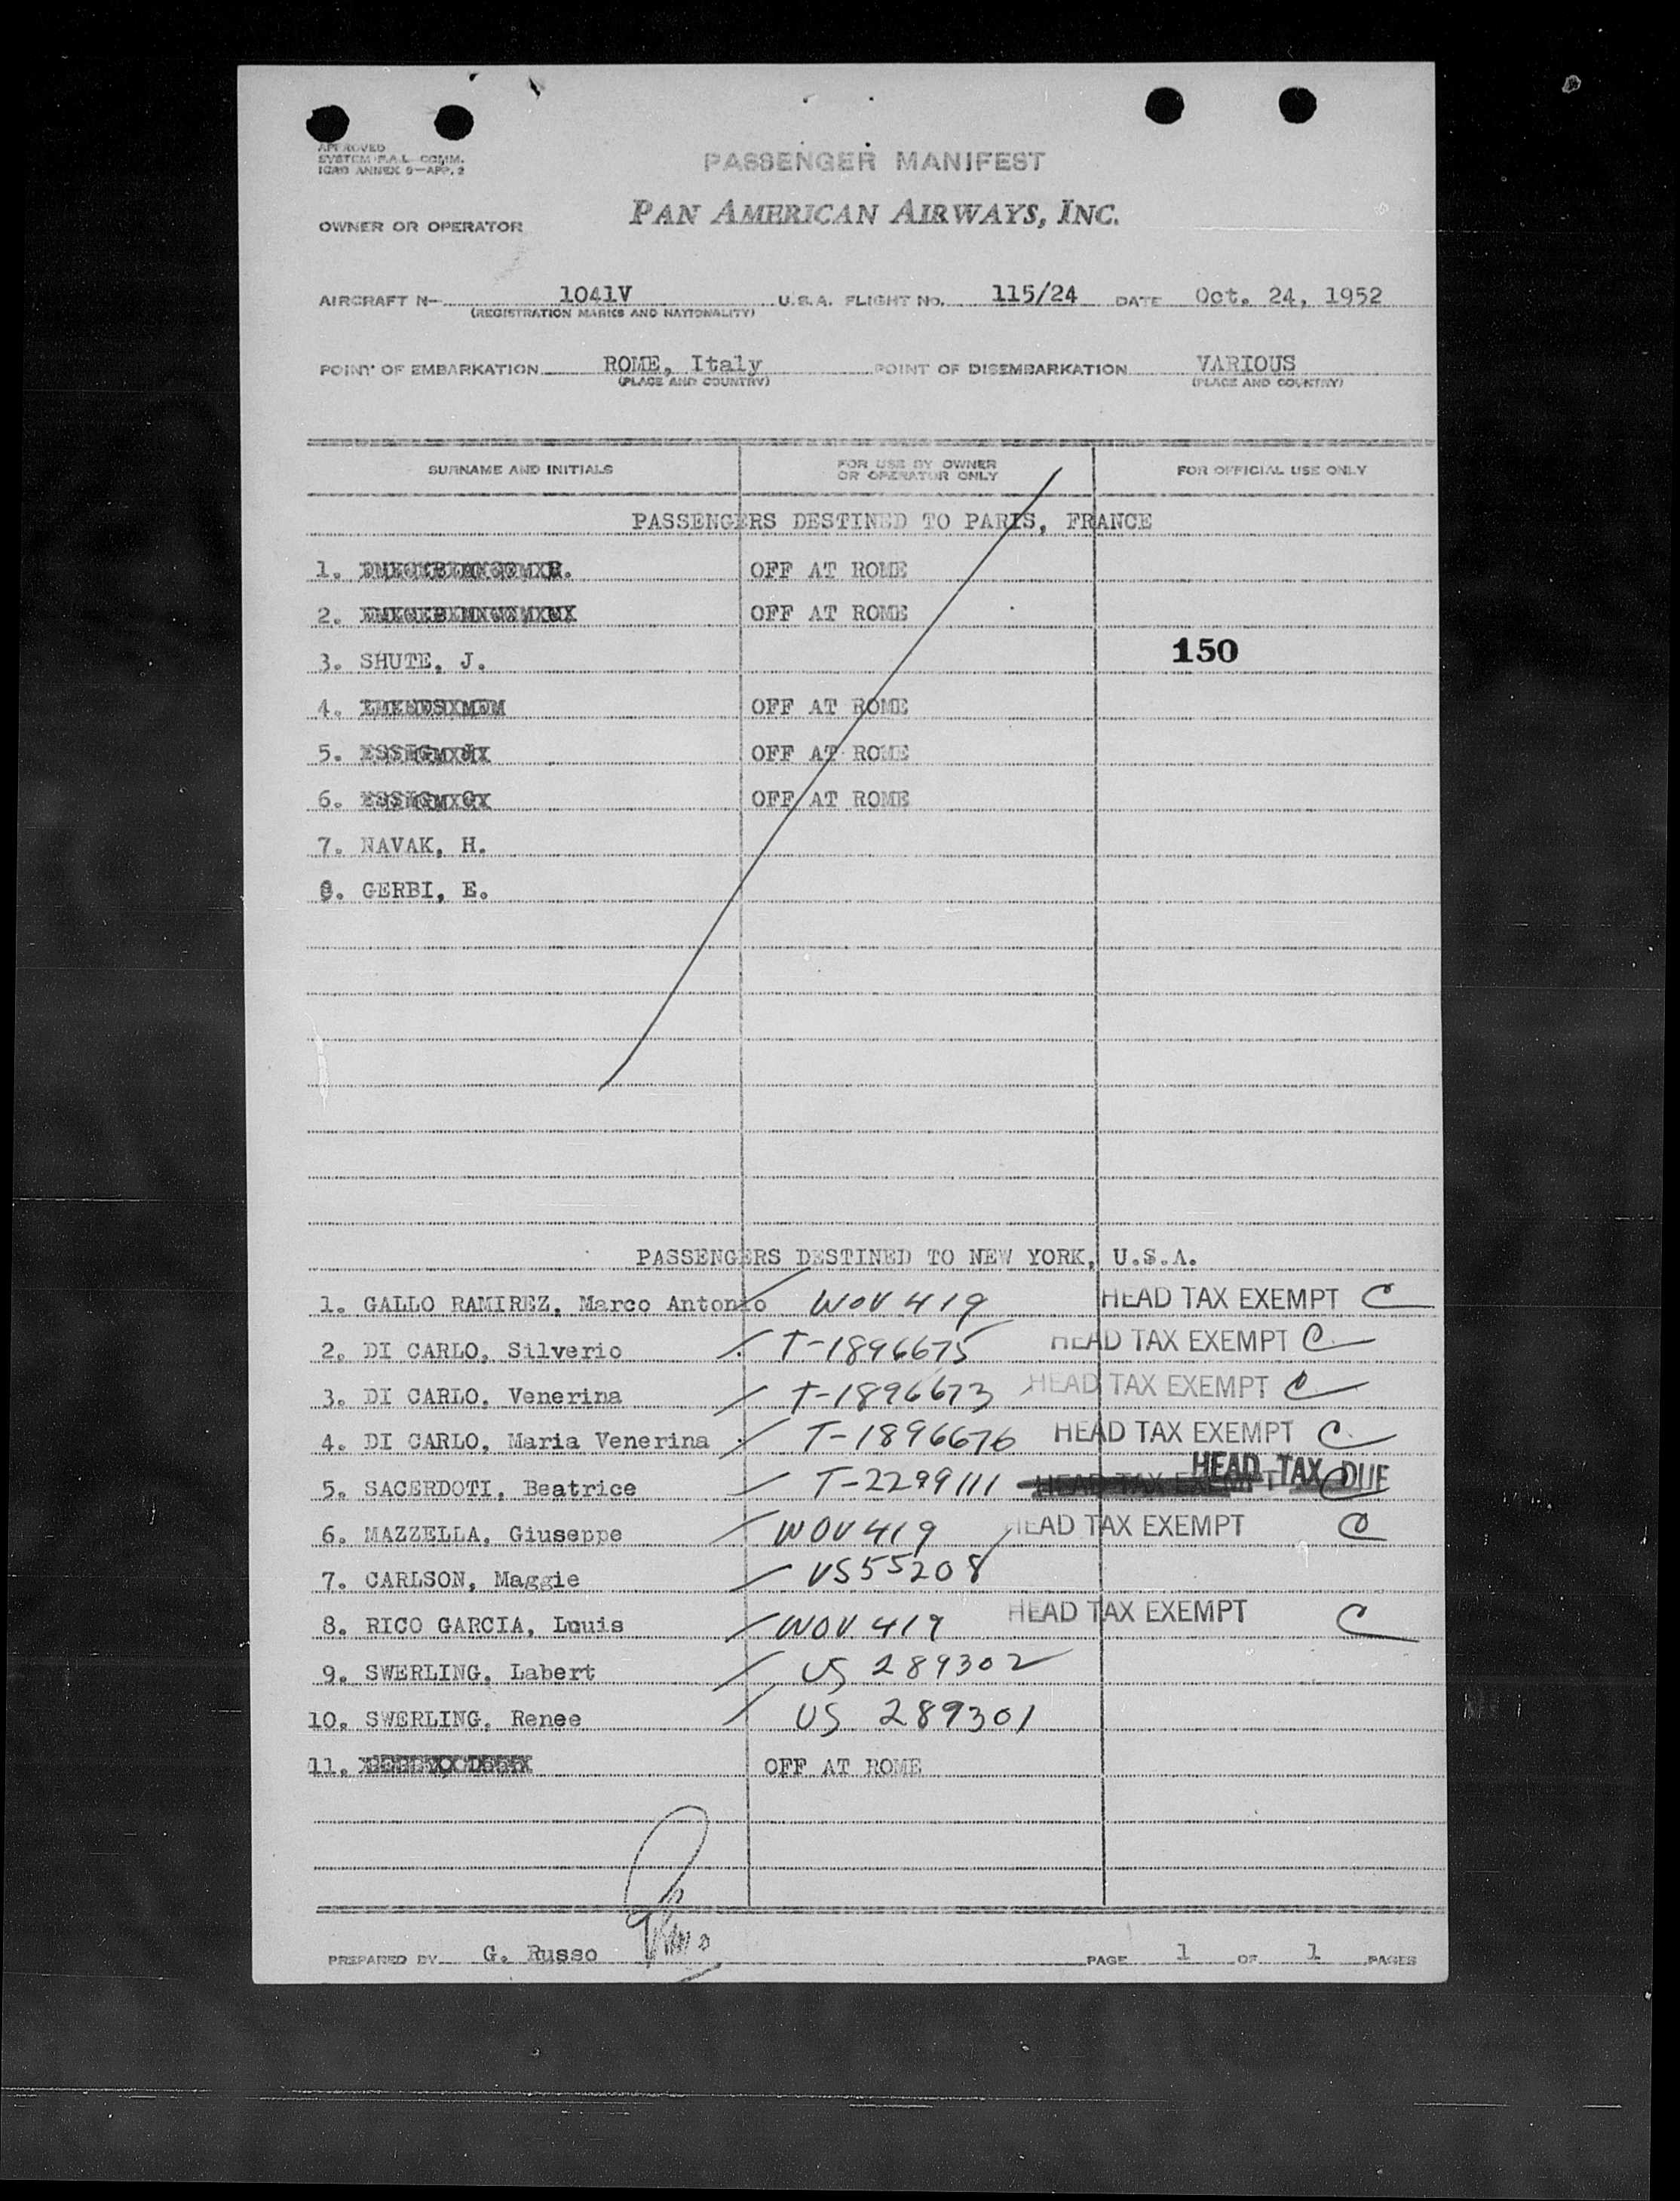 APPROVED
SYSTEM P.A.L. COMM.
ICAO ANNEX 9—APP. 2
PASSENGER MANIFEST
PAN AMERICAN AIRWAYS, INC.
OWNER OR OPERATOR
AIRCRAFT N— 1041V U.S.A. FLIGHT No. 115/24 DATE Oct. 24, 1952
(REGISTRATION MARKS AND NATIONALITY)
POINT OF EMBARKATION ROME, Italy POINT OF DISEMBARKATION VARIOUS
(PLACE AND COUNTRY) (PLACE AND COUNTRY)
SURNAME AND INITIALS FOR USE BY OWNER OR OPERATOR ONLY FOR OFFICIAL USE ONLY
PASSENGERS DESTINED TO PARIS, FRANCE
1. OFF AT ROME
2. OFF AT ROME
3. SHUTE, J. 150
4. OFF AT ROME
5. OFF AT ROME
6. OFF AT ROME
7. NAVAK, H.
8. GERBI, E.
PASSENGERS DESTINED TO NEW YORK, U.S.A.
1. GALLO RAMIREZ, Marco Antonio WOV 419 HEAD TAX EXEMPT C
2. DI CARLO, Silverio T-1896675 HEAD TAX EXEMPT C
3. DI CARLO, Venerina T-1896673 HEAD TAX EXEMPT C
4. DI CARLO, Maria Venerina T-1896676 HEAD TAX EXEMPT C
5. SACERDOTI, Beatrice T-2299111 HEAD TAX EXEMPT HEAD TAX DUE
6. MAZZELLA, Giuseppe WOV 419 HEAD TAX EXEMPT C
7. CARLSON, Maggie VS55208
8. RICO GARCIA, Louis WOV 419 HEAD TAX EXEMPT C
9. SWERLING, Labert US 289302
10. SWERLING, Renee US 289301
11. OFF AT ROME
PREPARED BY G. Russo PAGE 1 OF 1 PAGES